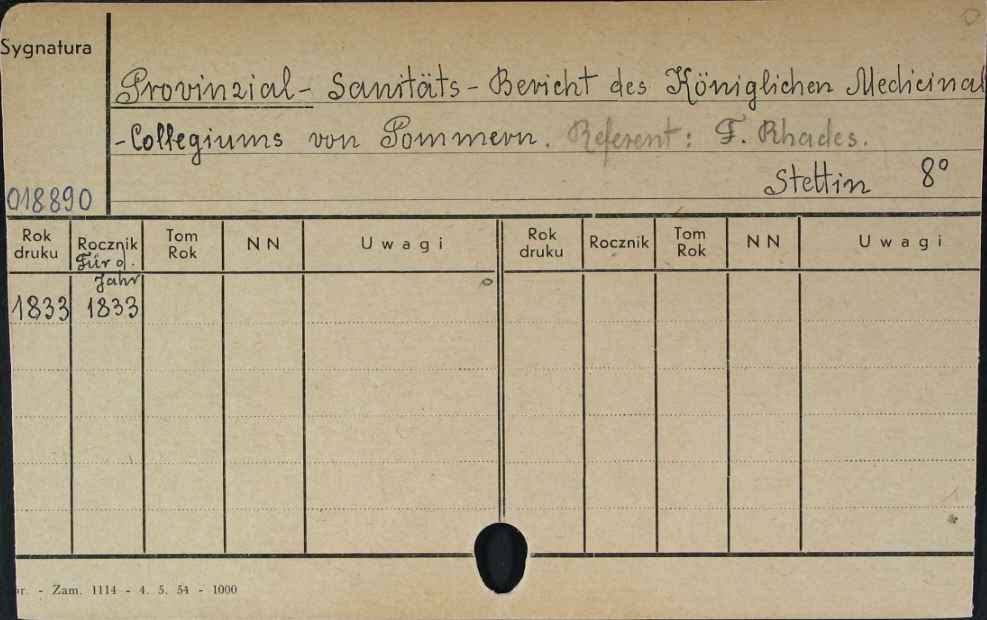 Sygnatura
Provinzial- Sanitäts-Bericht des Königlichen Medicinal
-Collegiums von Pommern. Referent: F. Rhades.
Stettin 8°
018890
Rok druku Rocznik Für d. Jahr Tom Rok NN Uwagi Rok druku Rocznik Tom Rok NN Uwagi
1833 1833
r. - Zam. 1114 - 4. 5. 54 - 1000